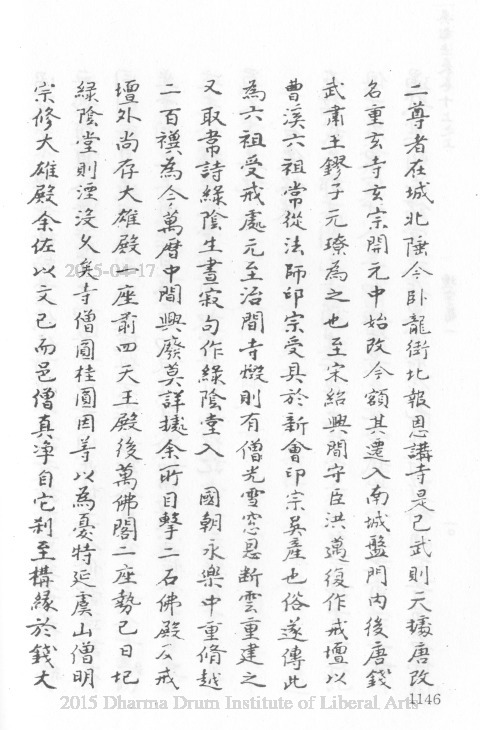 二尊者在城北陲今臥龍街北報恩講寺是已武則天擴唐改
名重玄寺玄宗開元中始改今額其遷入南城盤門內後唐錢
武肅王鏐子元璙為之也至宋紹興間守臣洪邁復作戒壇以
曹溪六祖常從法師印宗受具於新會印宗吳產也俗遂傳此
為六祖受戒處元至治間寺燬則有僧光雪窓恩斷雲重建之
又取常詩綠陰生晝寂句作綠陰堂入 國朝永樂中重脩越
二百禩為今萬曆中間興廢莫詳據余所目擊二石佛殿及戒
壇外尚存大雄殿一座前四天王殿後萬佛閣二座勢已日圮
綠陰堂則湮沒久矣寺僧圓桂圓因等以為憂特延虞山僧明
宗修大雄殿余佐以文已而邑僧真淨自它剎至構緣於錢大
2015-04-17
2015 Dharma Drum Institute of Liberal Arts
1146